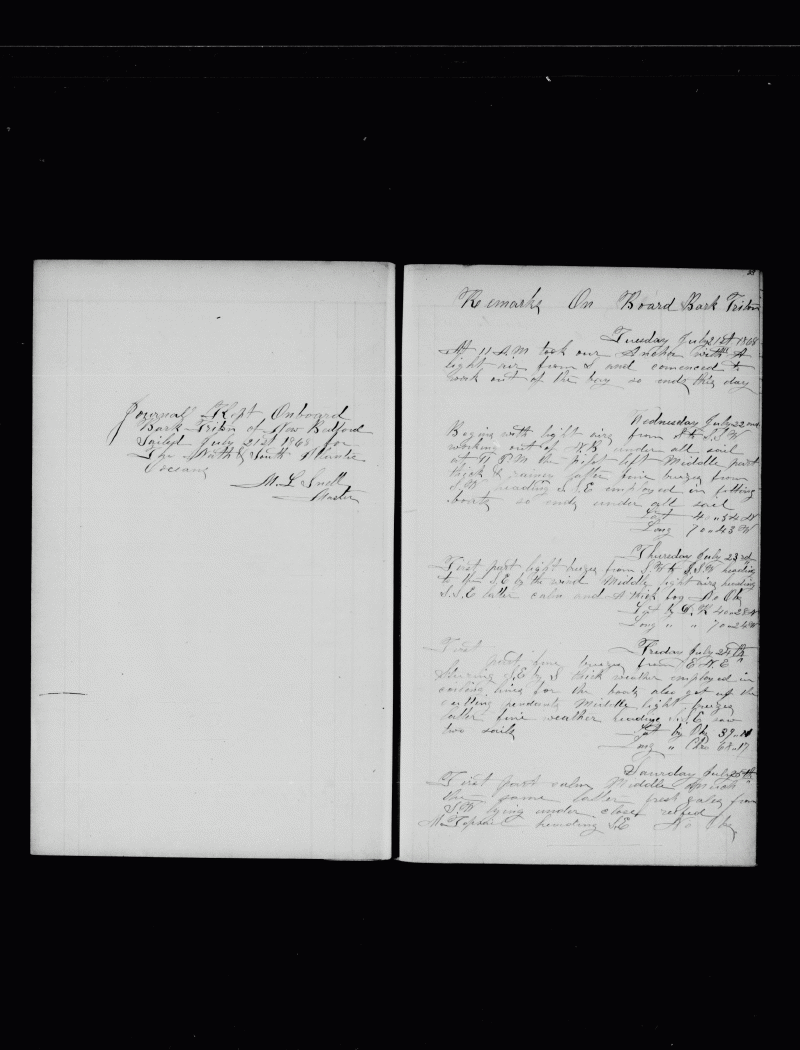 Journal Kept Onboard
Bark Triton of New Bedford
Sailed July 21st 1868 for
the North & South Atlantic
Oceans
M. L. Snell
Master
Remarks On Board Bark Triton
Tuesday July 21st 1868
At 11 A.M took our Anchor with A
light air from S and comenced to
work out of the bay so ends this day
Wednesday July 22nd
Begins with light airs from S to S.S.W
working out of under all sail
at 4 P.M the pilot left Middle part
thick & rainy latter fine breezes from
S.W heading S.E employed in fitting
boats so ends under all sail
Lat 40..54 N
Long 70..43 W
Thursday July 23rd
First part light breezes from S.W to S.S.W heading
to the S.E by the wind Middle light airs heading
S.S.E latter calm and A thick fog No Ob
Lat by D.R 40..28 N
Long " " 70..24 W
Friday July 24th
First part fine breezes from E.N.E
steering S.E by S thick weather employed in
coiling lines for the boats also got up the
cutting pendants Middle light breezes
latter fine weather heading S.E saw
two sails Lat by Ob 39..
Long " Chro 68..17
Saturday July 25th
First part calm Middle much
the same latter fresh gales from
S.W lying under close reefed
M. Topsail heading S.E No Ob